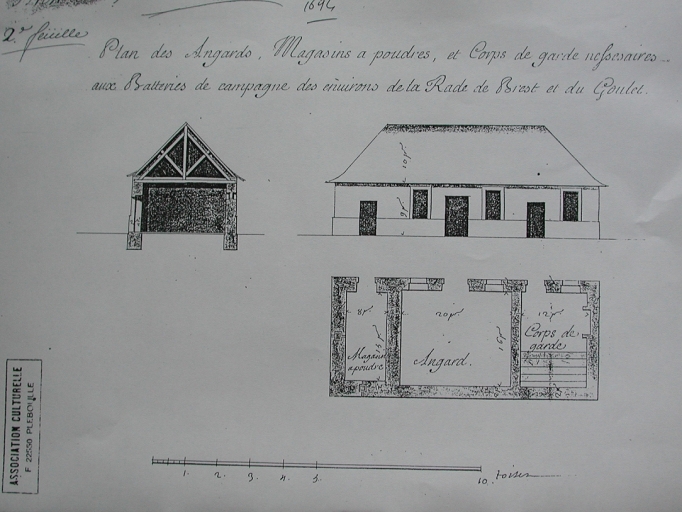 1694
2e feuille
Plan des Angards, Magasins a poudres, et Corps de garde nessesaires
aux Batteries de campagne des environs de la Rade de Brest et du Goulet.
10 p
9 p
8 p
20 p
12 p
15 p
16 p
Magasin
a poudre
Angard.
Corps de
garde
1. 2. 3. 4. 5. 10. toises
ASSOCIATION CULTURELLE
F 22550 PLEBOULLE